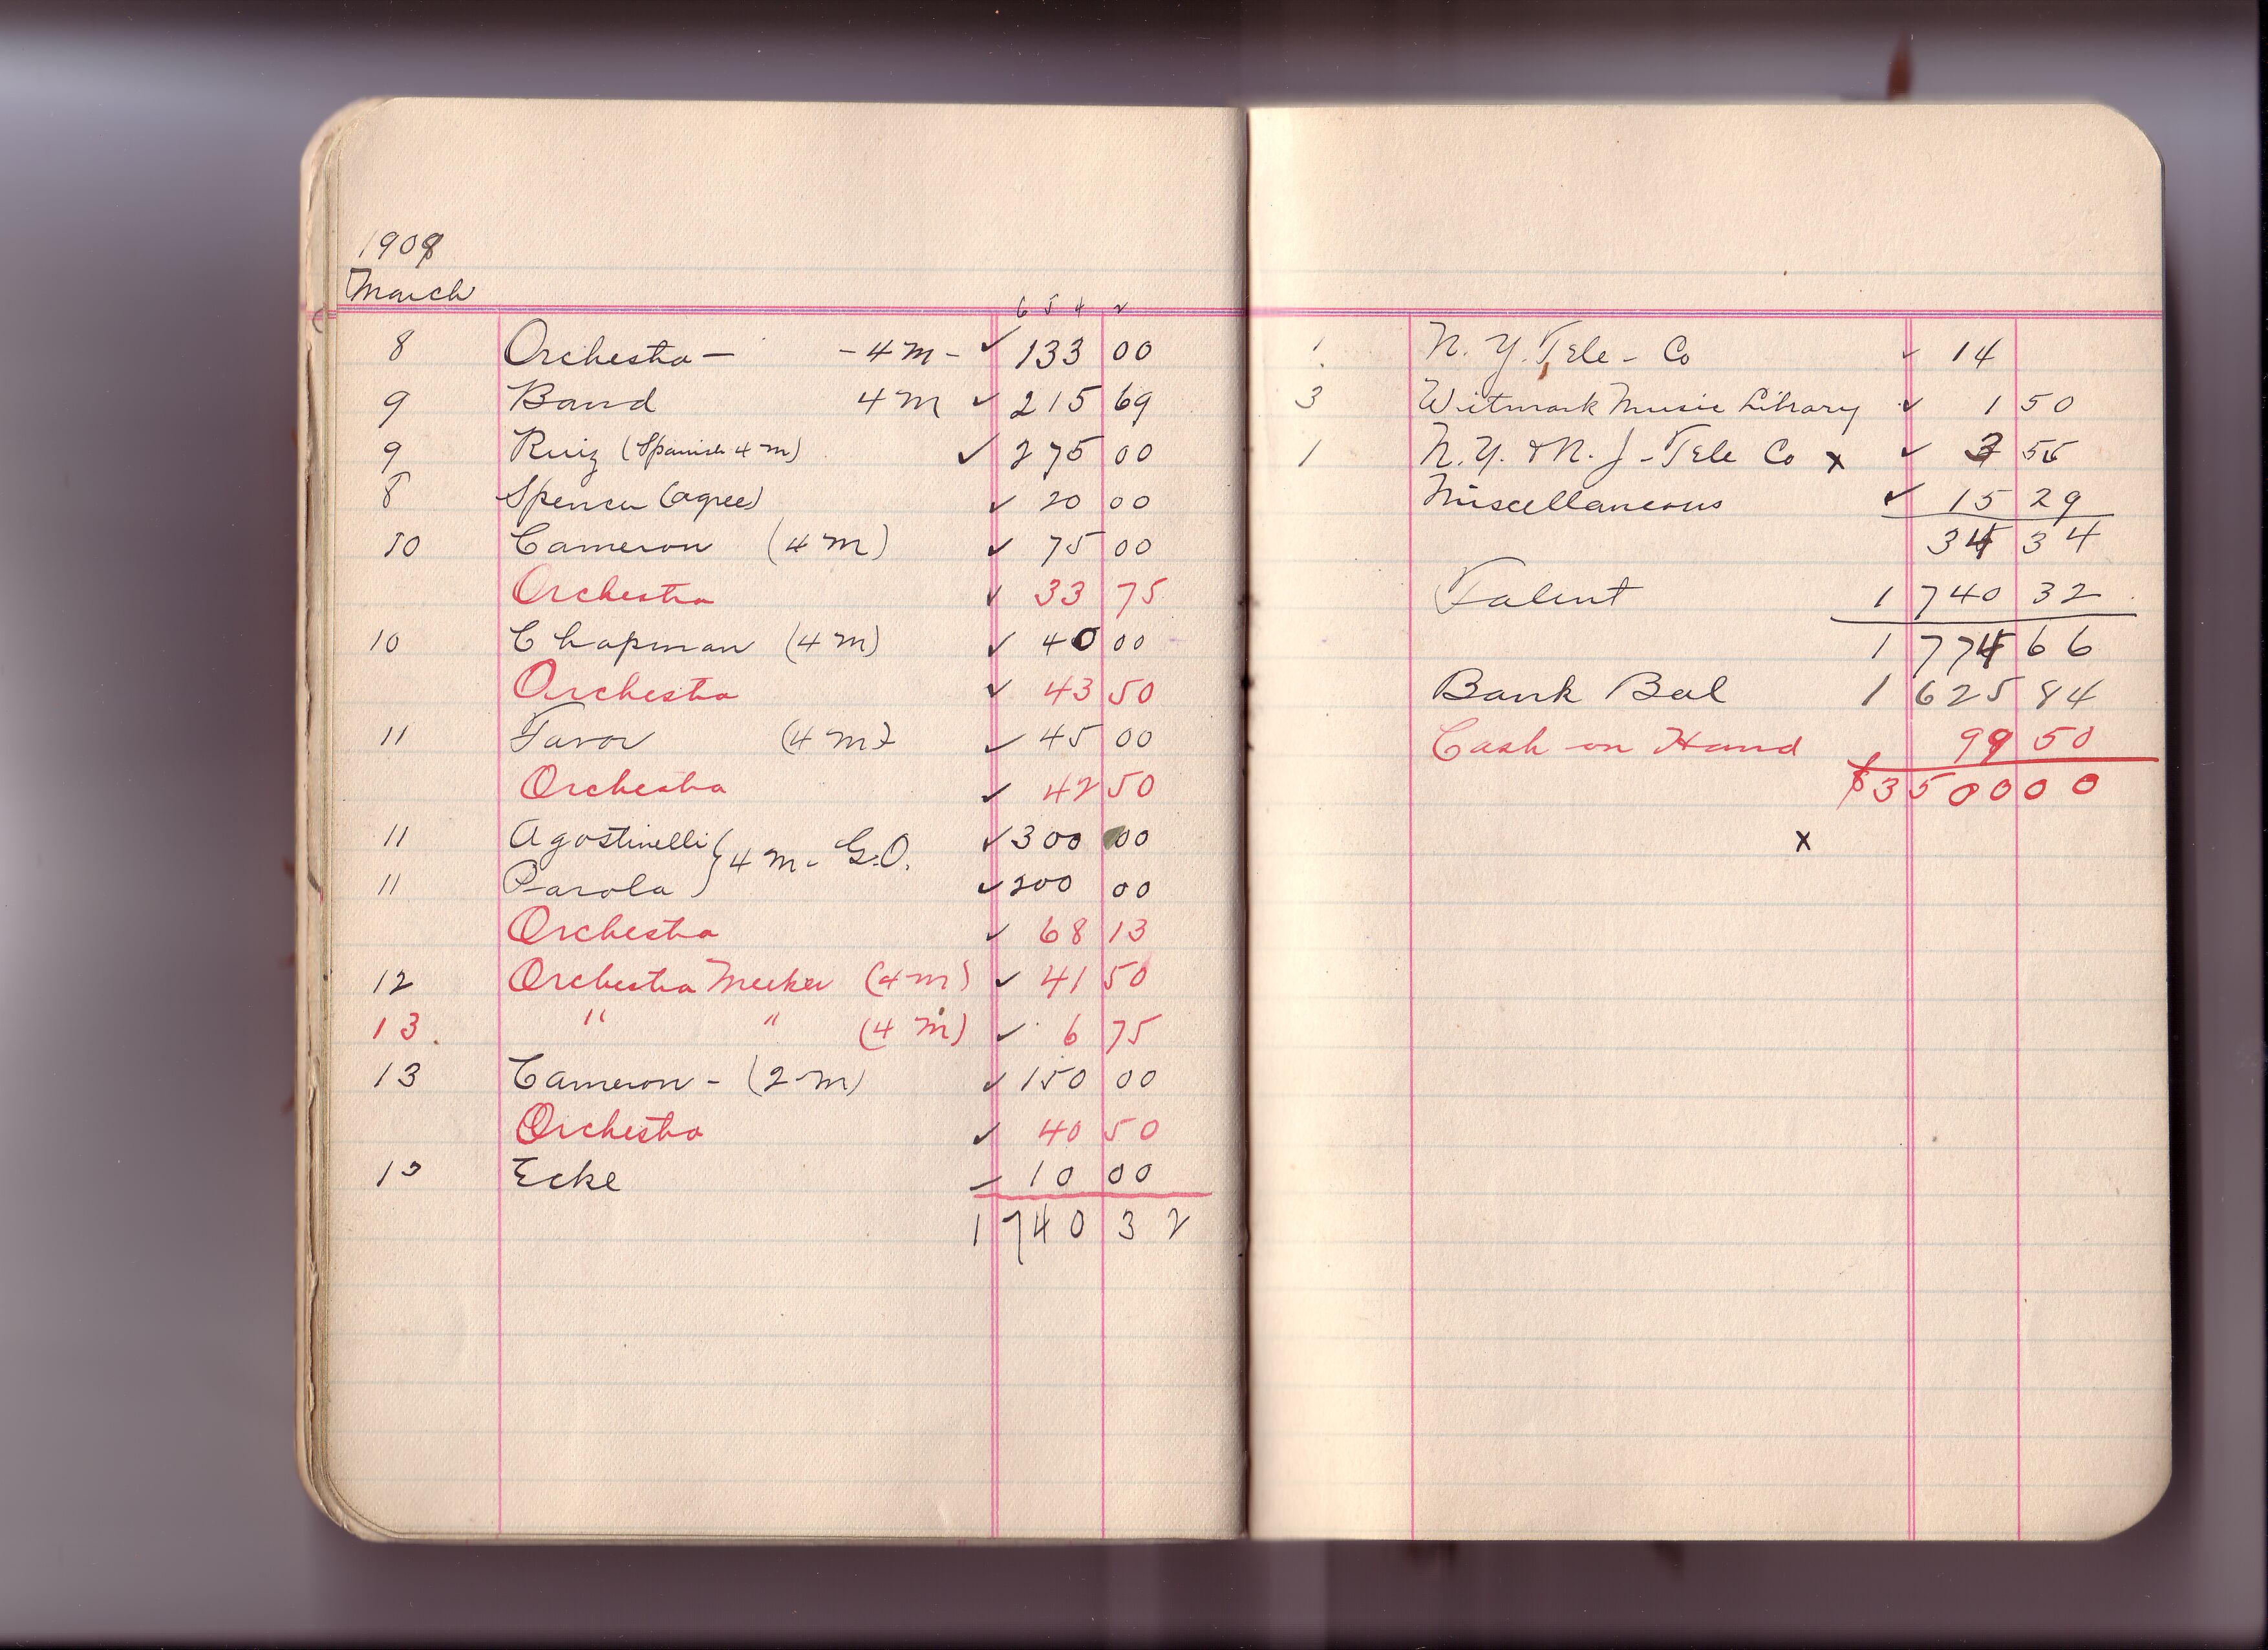 1909
March
6 5 4 2
8 Orchestra — - 4 M - ✓ 133 00
9 Band 4 M ✓ 215 69
9 Ruiz (Spanish 4 M) ✓ 275 00
8 Spencer (agree) ✓ 20 00
10 Cameron (4 M) ✓ 75 00
Orchestra ✓ 33 75
10 Chapman (4 M) ✓ 40 00
Orchestra ✓ 43 50
11 Favor (4 M) ✓ 45 00
Orchestra ✓ 42 50
11 Agostinelli } 4 M - G.O. ✓ 300 00
11 Parola ✓ 200 00
Orchestra ✓ 68 13
12 Orchestra Meeker (4 M) ✓ 41 50
13 " " (4 M) ✓ 6 75
13 Cameron - (2 M) ✓ 150 00
Orchestra ✓ 40 50
Ecke 10 00
1 740 32
1 N. Y. Tele - Co ✓ 14
3 Witmark Music Library ✓ 1 50
1 N. Y. & N. J - Tele Co x ✓ 3 55
Miscellaneous ✓ 15 29
34 34
Talent 1 740 32
1 774 66
Bank Bal 1 625 84
Cash on Hand 99 50
$3 500 00
x